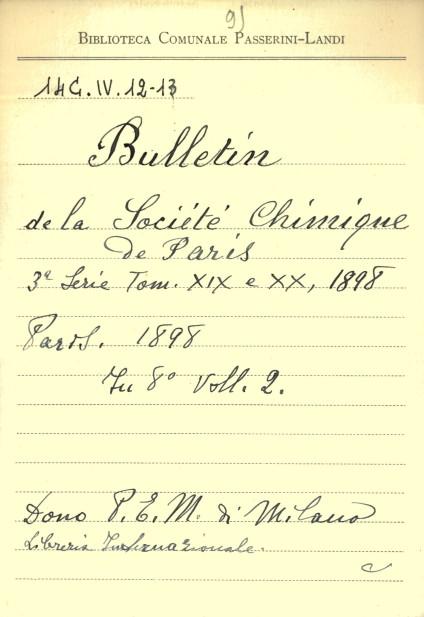 91
Biblioteca Comunale Passerini-Landi
14G.IV.12-13
Bulletin
de la Société Chimique
de Paris
3ª Serie Tom. XIX e XX, 1898
Paris. 1898
In 8° Voll. 2.
Dono P.E.M. di Milano
Libreria Internazionale.
c